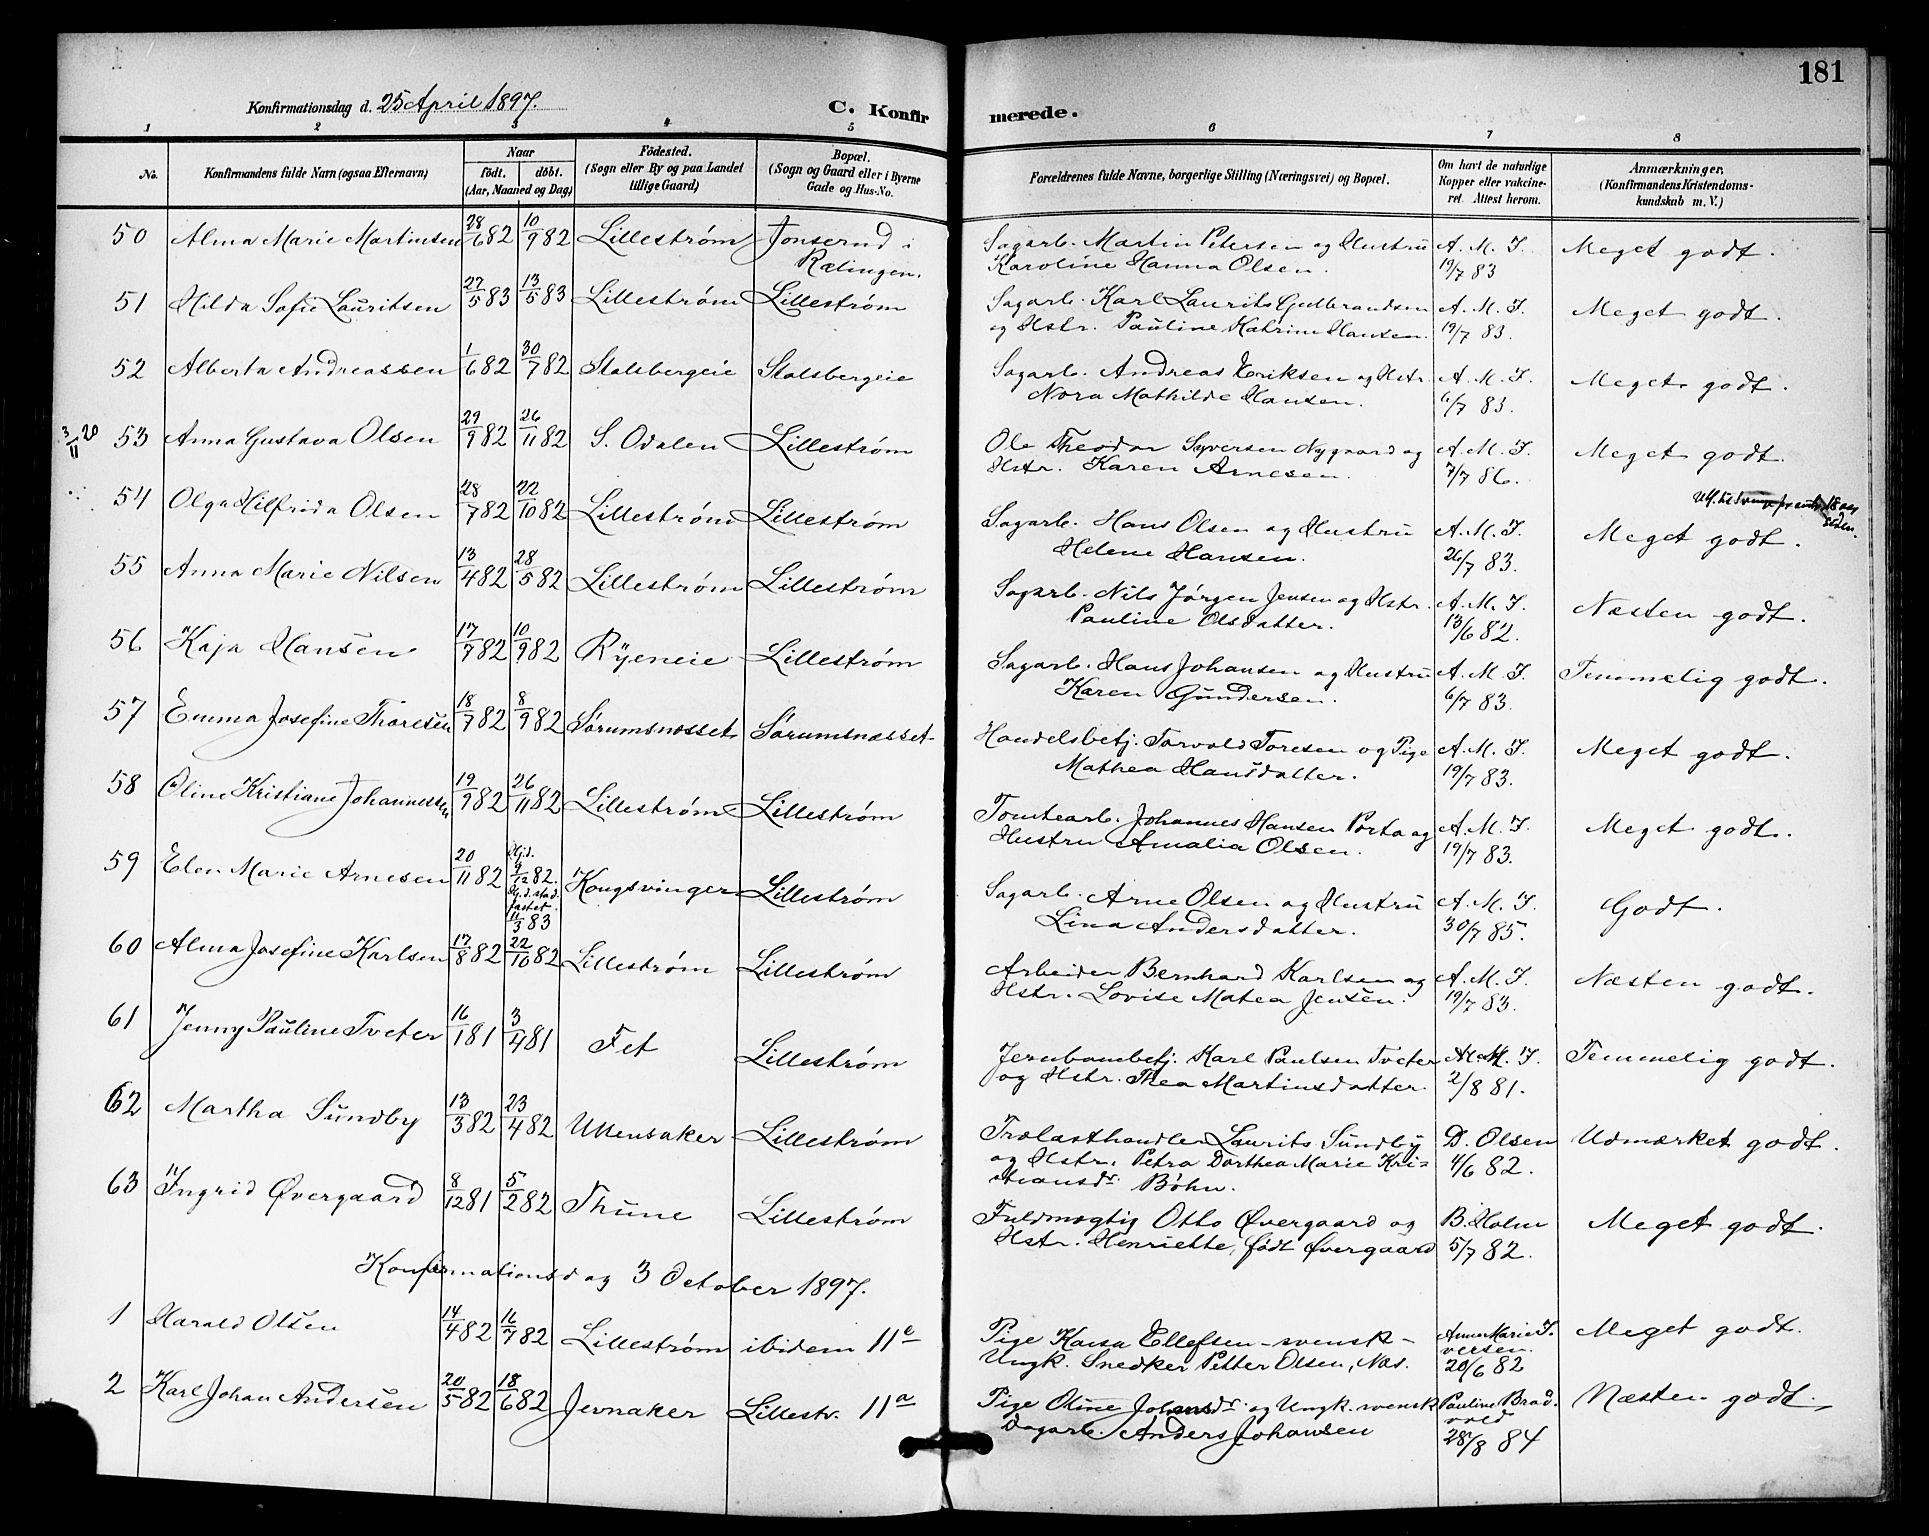 181
Konfirmationsdag d. 25 April 1897.
C. Konfirmerede.
1 2 3 4 5 6 7 8
No.
Konfirmandens fulde Navn (ogsaa Efternavn)
Naar
födt. döbt.
(Aar, Maaned og Dag)
Födested.
(Sogn eller By og paa Landet
tillige Gaard)
Bopæl.
(Sogn og Gaard eller i Byerne
Gade og Hus-No.
Forældrenes fulde Navne, borgerlige Stilling (Næringsvei) og Bopæl.
Om havt de naturlige
Kopper eller vakcine-
ret. Attest herom.
Anmærkninger.
(Konfirmandens Kristendoms-
kundskab m. V.)
50 Alma Marie Martinsen 28/6 82 10/9 82 Lillestrøm Jonsrud i
Rælingen.
Sagarb. Martin Petersen og Hustru
Karoline Hanna Olsen.
A. M. I.
19/7 83
Meget godt.
51 Hilda Sofie Lauritsen 27/5 83 13/5 83 Lillestrøm Lillestrøm
Sagarb. Karl Laurits Gulbrandsen
og Hstr. Pauline Katrine Hansen.
A. M. I.
19/7 83.
Meget godt.
52 Alberta Andreassen 1/6 82 30/7 82 Stalsbergeie Stalsbergeie
Sagarb. Andreas Eriksen og Hstr.
Nora Mathilde Hansen.
A. M. I.
6/7 83.
Meget godt.
3/11 20 53 Anna Gustava Olsen 29/9 82 26/11 82 S. Odalen Lillestrøm
Ole Theodor Syversen Nygaard og
Hstr. Karen Arnesen.
A. M. I.
7/7 86.
Meget godt.
54 Olga Hilfrida Olsen 28/7 82 22/10 82 Lillestrøm Lillestrøm
Sagarb. Hans Olsen og Hustru
Helene Hansen.
A. M. I.
26/7 83.
Meget godt.
55 Anna Marie Nilsen 13/4 82 28/5 82 Lillestrøm Lillestrøm
Sagarb. Nils Jørgen Jensen og Hstr.
Pauline Olsdatter.
A. M. I.
13/6 82.
Næsten godt.
56 Kaja Hansen 17/7 82 10/9 82 Ryeneie Lillestrøm
Sagarb. Hans Johansen og Hustru
Karen Gundersen.
A. M. I.
6/7 83.
Temmelig godt.
57 Emma Josefine Thoresen 18/7 82 8/9 82 Sørumsnæsset Sørumsnæsset
Handelsbetj. Torvald Toresen og Pige
Mathea Hansdatter.
A. M. I.
19/7 83.
Meget godt.
58 Oline Kristiane Johannessen 19/9 82 26/11 82 Lillestrøm Lillestrøm
Tomtearb. Johannes Hansen Porta og
Hustru Amalia Olsen.
A. M. I.
19/7 83.
Meget godt.
59 Elen Marie Arnesen 20/11 82 Hj.d.
9/12 82.
stad.
fæstet.
11/3 83
Kongsvinger Lillestrøm
Sagarb. Arne Olsen og Hustru
Lina Andersdatter.
A. M. I.
30/7 85.
Godt.
60 Alma Josefine Karlsen 17/8 82 22/10 82 Lillestrøm Lillestrøm
Arbeider Bernhard Karlsen og
Hstr. Lovise Matea Jensen.
A. M. I.
19/7 83.
Næsten godt.
61 Jenny Pauline Tveter 16/1 81 3/4 81 Fet Lillestrøm
Jernbanebetj. Karl Paulsen Tveter
og Hstr. Thea Martinsdatter.
A. M. I.
2/8 81.
Temmelig godt.
62 Martha Sundby 13/3 82 23/4 82 Ullensaker Lillestrøm
Trælasthandler Laurits Sundby
og Hstr. Petra Dorthea Marie Kri=
stiansdr. Bøhn.
D. Olsen
4/6 82.
Udmærket godt.
63 Ingrid Øvergaard 8/12 81 5/2 82 Thune Lillestrøm
Fuldmægtig Otto Øvergaard og
Hstr. Henriette, født Øvergaard
B. Holm
5/7 82.
Meget godt.
Konfirmationsdag 3 October 1897.
1 Harald Olsen 14/4 82 16/7 82 Lillestrøm ibidem 11e
Pige Kaisa Ellefsen - svensk -
Ungk. Snedker Petter Olsen, Næs.
Anne Marie I-
versen.
20/6 82
Meget godt.
2 Karl Johan Andersen 20/5 82 18/6 82 Jevnaker Lillestr. 11a
Pige Oline Johansdr. og Ungk. svensk
Dagarb. Anders Johansen
Pauline Brad.
vold
28/8 84
Næsten godt.